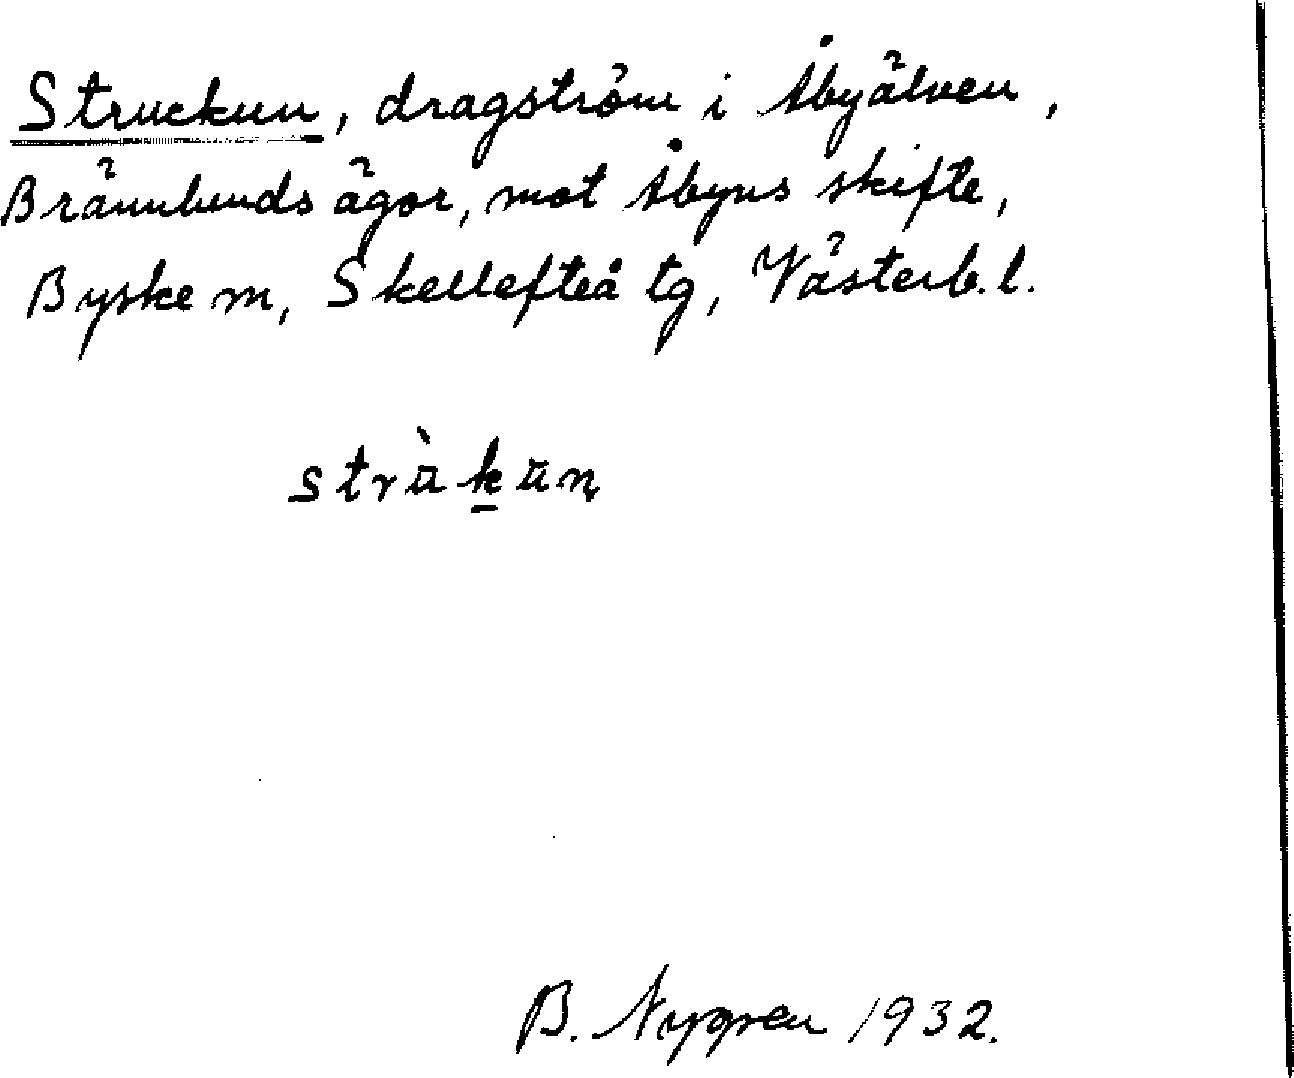 Struckun, dragström i Åbyälven,
Brännlunds ägor, mot Åbyns skifte,
Byske m, Skellefteå tg, Västerb. l.
strùkun
B. Nygren 1932.